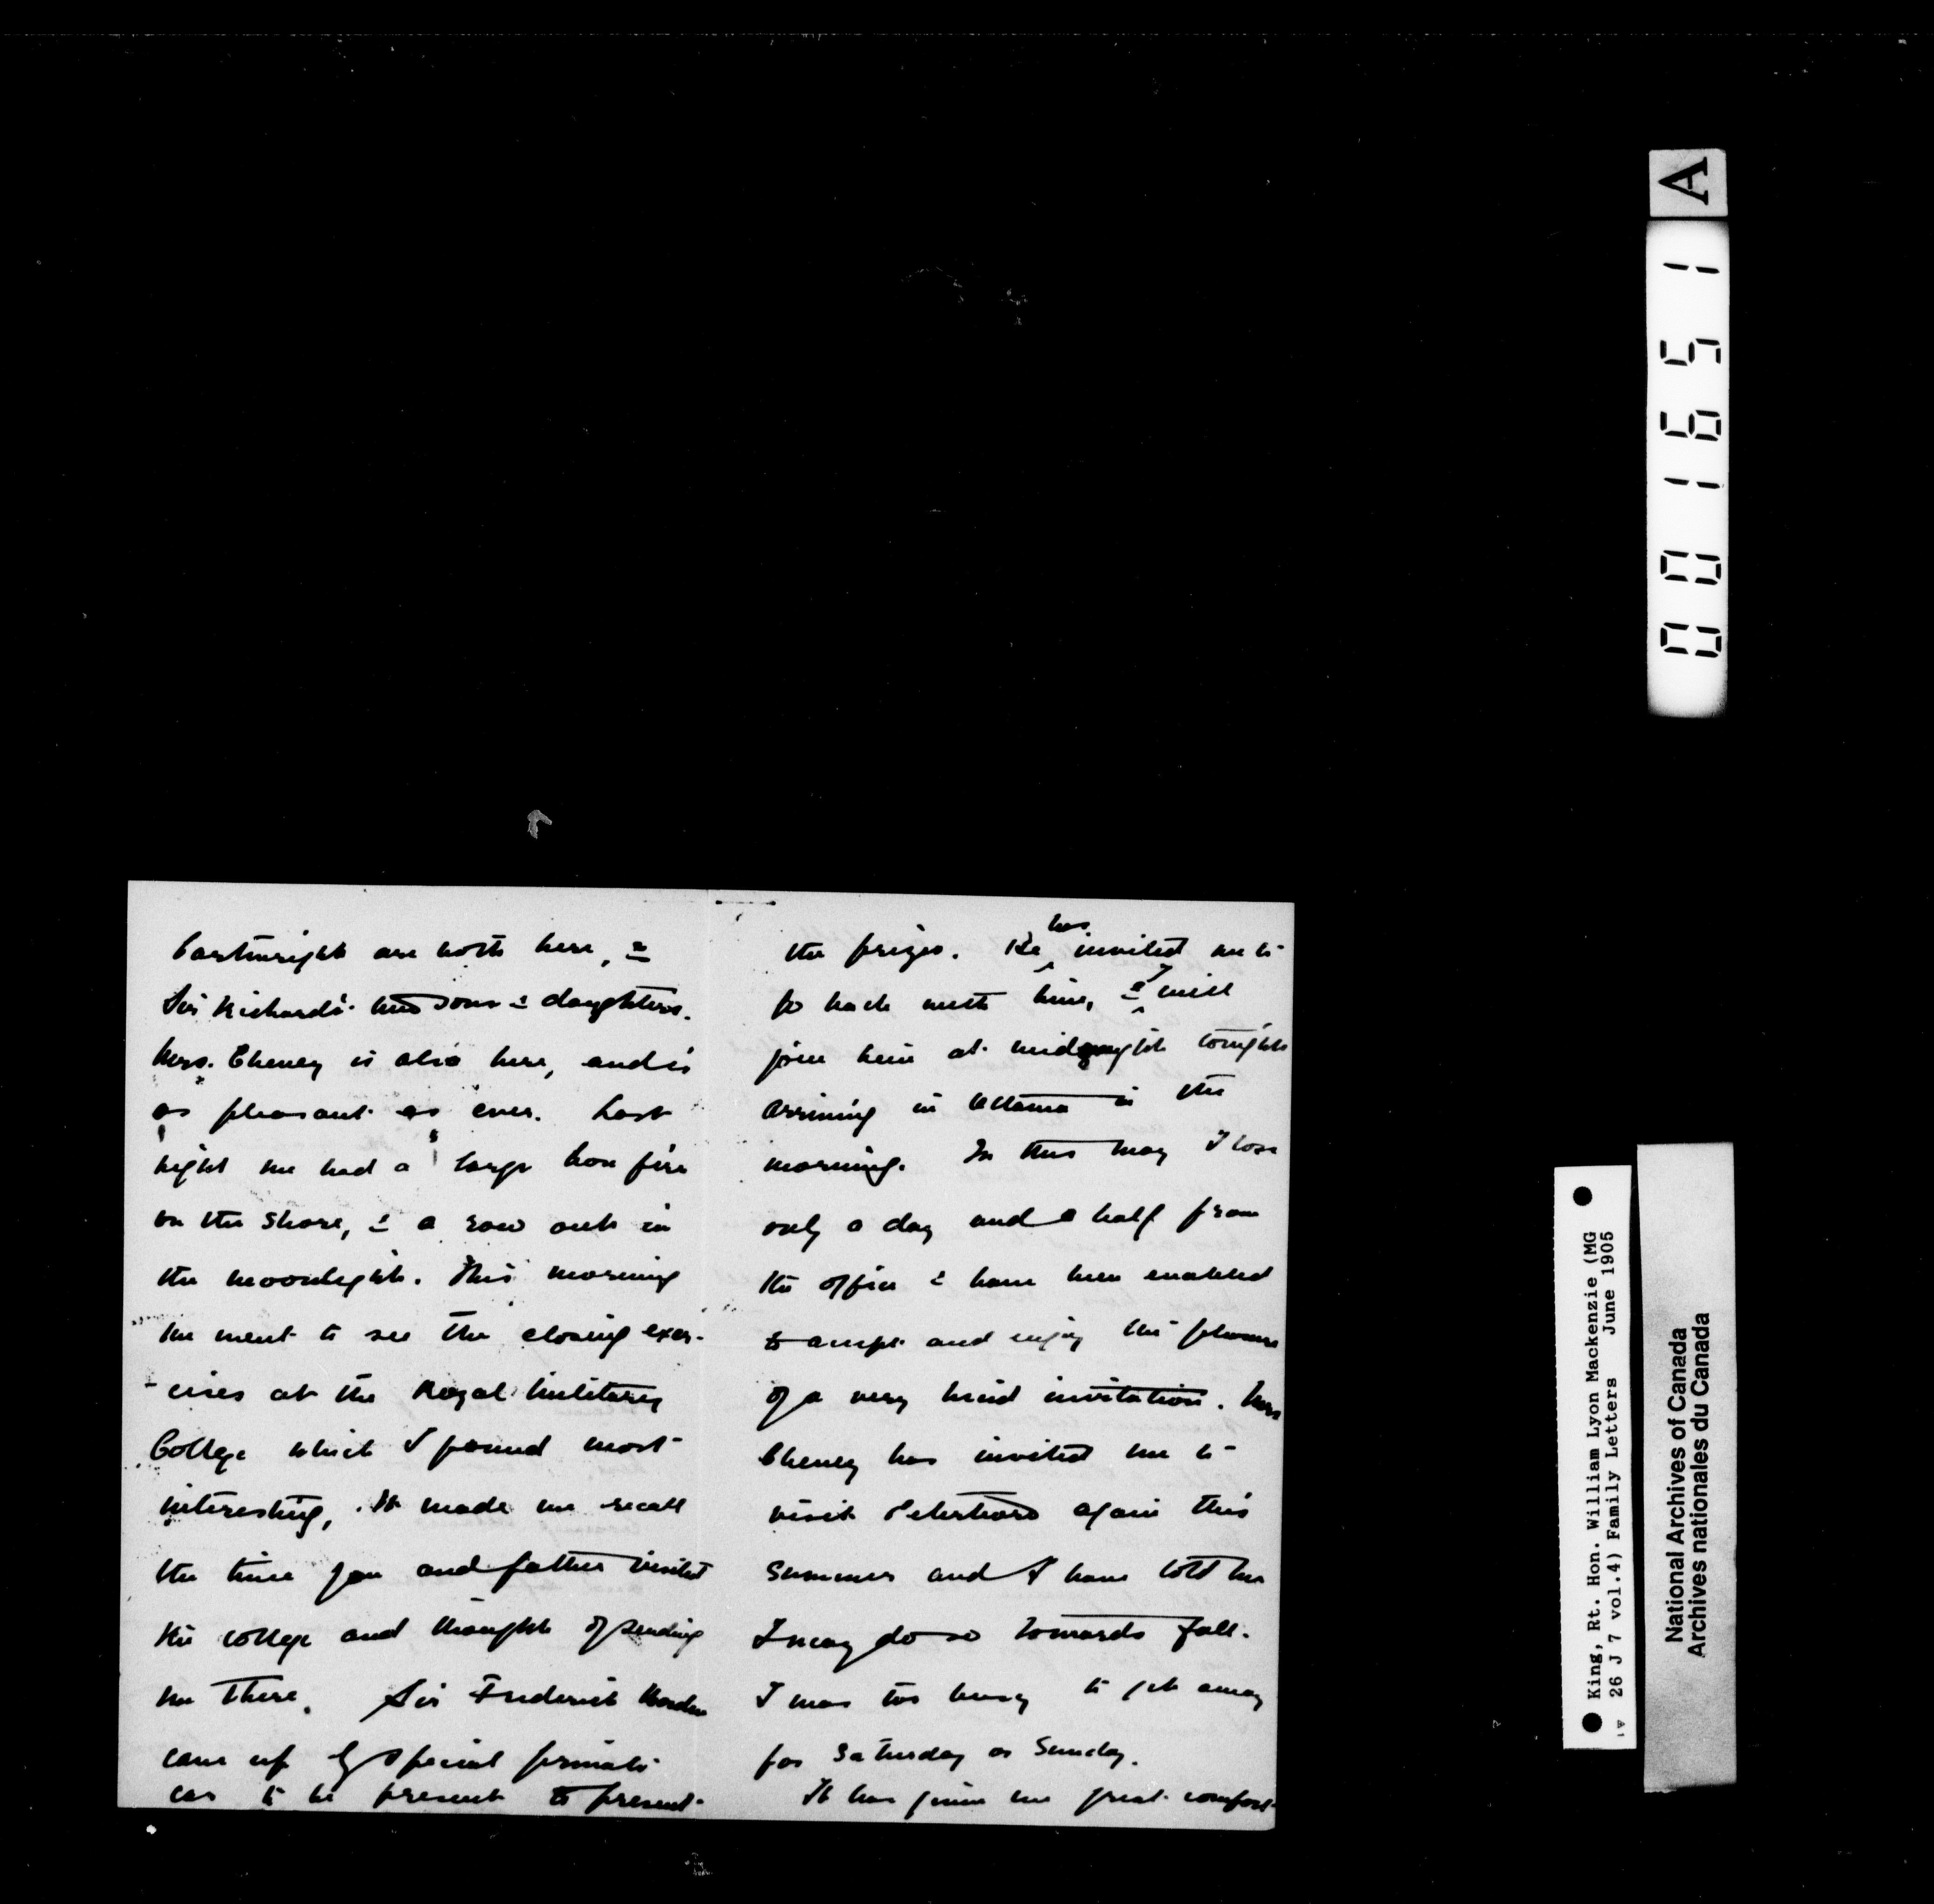 Cartwright are both here, &
Sir Richard's two sons & daughters.
Mrs. Cheney is also here, and is
as pleasant as ever. Last
night we had a large bon fire
on the shore, & a row out in
the moonlight. This morning
we went to see the closing exer-
-cises at the Royal Military
College which I found most
interesting, it made me recall
the time you and father visited
the college and thought of sending
me there. Sir Frederick Borden
came up by special private
car to be present to present
the prizes. He has invited me to
go back with him, & I will
join him at midnight tonight
arriving in Ottawa in the
morning. In this way I lose
only a day and a half from
the office & have been enabled
to accept and enjoy the pleasure
of a very kind invitation. Mrs
Cheney has invited me to
visit Peterboro again this
summer and I have told her
I may do so towards fall.
I was too busy to get away
for Saturday or Sunday.
It has given me great comfort
A
001651
King, Rt. Hon. William Lyon Mackenzie (MG
26 J 7 vol.4) Family Letters June 1905
National Archives of Canada
Archives nationales du Canada